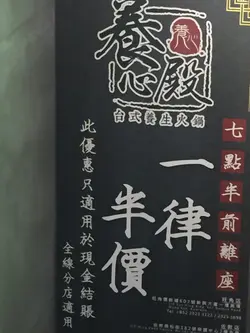 養心殿
養心
台式養生火鍋
七點半前離座
一律
半價
此優惠只適用於現金結賬
全線分店適用